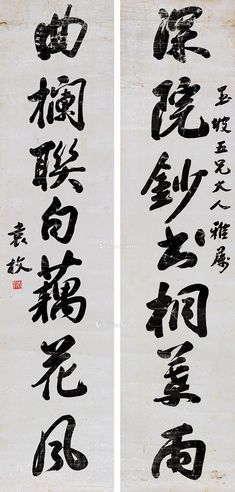 深院鈔書桐葉雨
玉坡五兄大人雅屬
曲欄聯句藕花風
袁枚